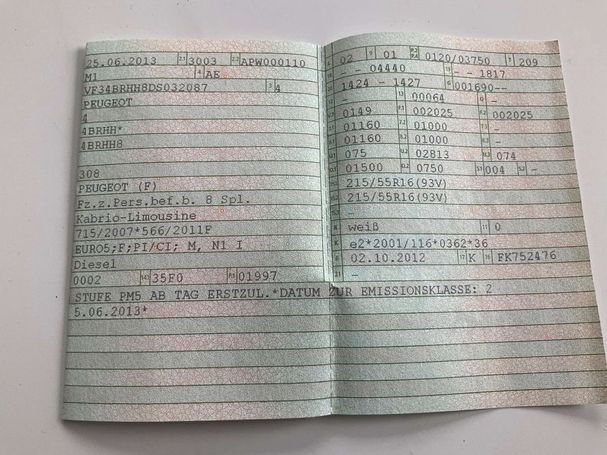 25.06.2013 3003 APW000110
M1 AE
VF34BRHH8DS032087 4
PEUGEOT
4
4BRHH*
4BRHH8
308
PEUGEOT (F)
Fz.z.Pers.bef.b. 8 Spl.
Kabrio-Limousine
715/2007*566/2011F
EURO5;F;PI/CI; M, N1 I
Diesel
0002 35F0 01997
STUFE PM5 AB TAG ERSTZUL.*DATUM ZUR EMISSIONSKLASSE: 2
5.06.2013*
02 01 0120/03750 209
- - 04440 - - 1817
1424 - 1427 001690--
- 00064 -
0149 002025 002025
01160 01000 -
01160 01000 -
075 02813 074
01500 0750 004 -
215/55R16(93V)
215/55R16(93V)
-
weiß 0
e2*2001/116*0362*36
02.10.2012 K FK752476
-